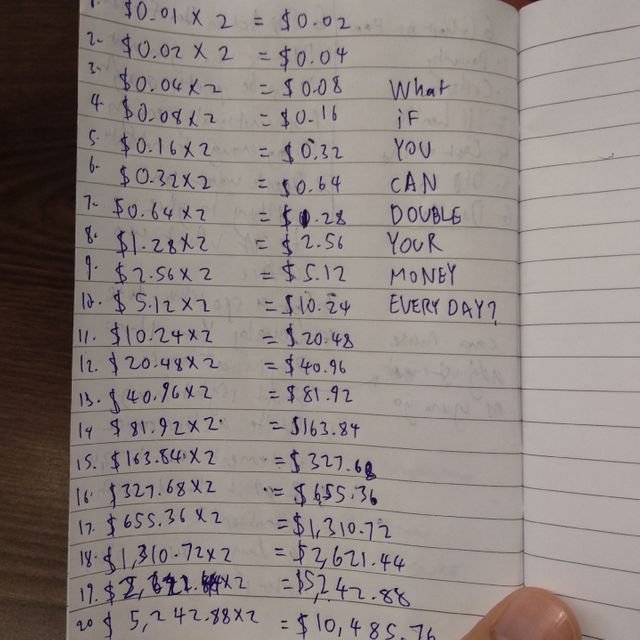 1. $0.01 X 2 = $0.02
2. $0.02 X 2 = $0.04
3. $0.04 X 2 = $0.08 What
4. $0.08 X 2 = $0.16 iF
5. $0.16 X 2 = $0.32 YOU
6. $0.32 X 2 = $0.64 CAN
7. $0.64 X 2 = $1.28 DOUBLE
8. $1.28 X 2 = $2.56 YOUR
9. $2.56 X 2 = $5.12 MONEY
10. $5.12 X 2 = $10.24 EVERY DAY?
11. $10.24 X 2 = $20.48
12. $20.48 X 2 = $40.96
13. $40.96 X 2 = $81.92
14 $81.92 X 2 = $163.84
15. $163.84 X 2 = $327.68
16. $327.68 X 2 = $655.36
17. $655.36 X 2 = $1,310.72
18. $1,310.72 X 2 = $2,621.44
19. $2,621.44 X 2 = $5,242.88
20 $5,242.88 X 2 = $10,485.76